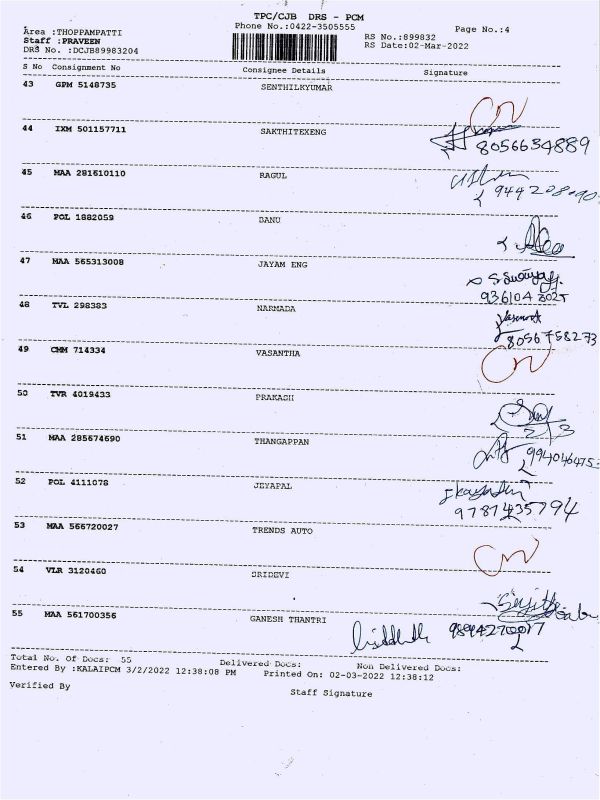 TPC/CJB DRS - PCM
Area :THOPPAMPATTI Phone No.:0422-3505555 Page No.:4
Staff :PRAVEEN RS No.:899832
DRS No. :DCJB89983204 RS Date:02-Mar-2022
S No Consignment No Consignee Details Signature
43 GPM 5148735 SENTHILKYUMAR
CN
44 IXM 501157711 SAKTHITEXENG
8056634889
45 MAA 281610110 RAGUL
46 POL 1882059 BANU
47 MAA 565313008 JAYAM ENG
48 TVL 298383 NARMADA
8056758273
49 CMM 714334 VASANTHA
CN
50 TVR 4019433 PRAKASH
51 MAA 285674690 THANGAPPAN
52 POL 4111078 JEYAPAL
9787435794
53 MAA 566720027 TRENDS AUTO
CN
54 VLR 3120460 SRIDEVI
55 MAA 561700356 GANESH THANTRI
Total No. Of Docs: 55 Delivered Docs: Non Delivered Docs:
Entered By :KALAIPCM 3/2/2022 12:38:08 PM Printed On: 02-03-2022 12:38:12
Verified By Staff Signature